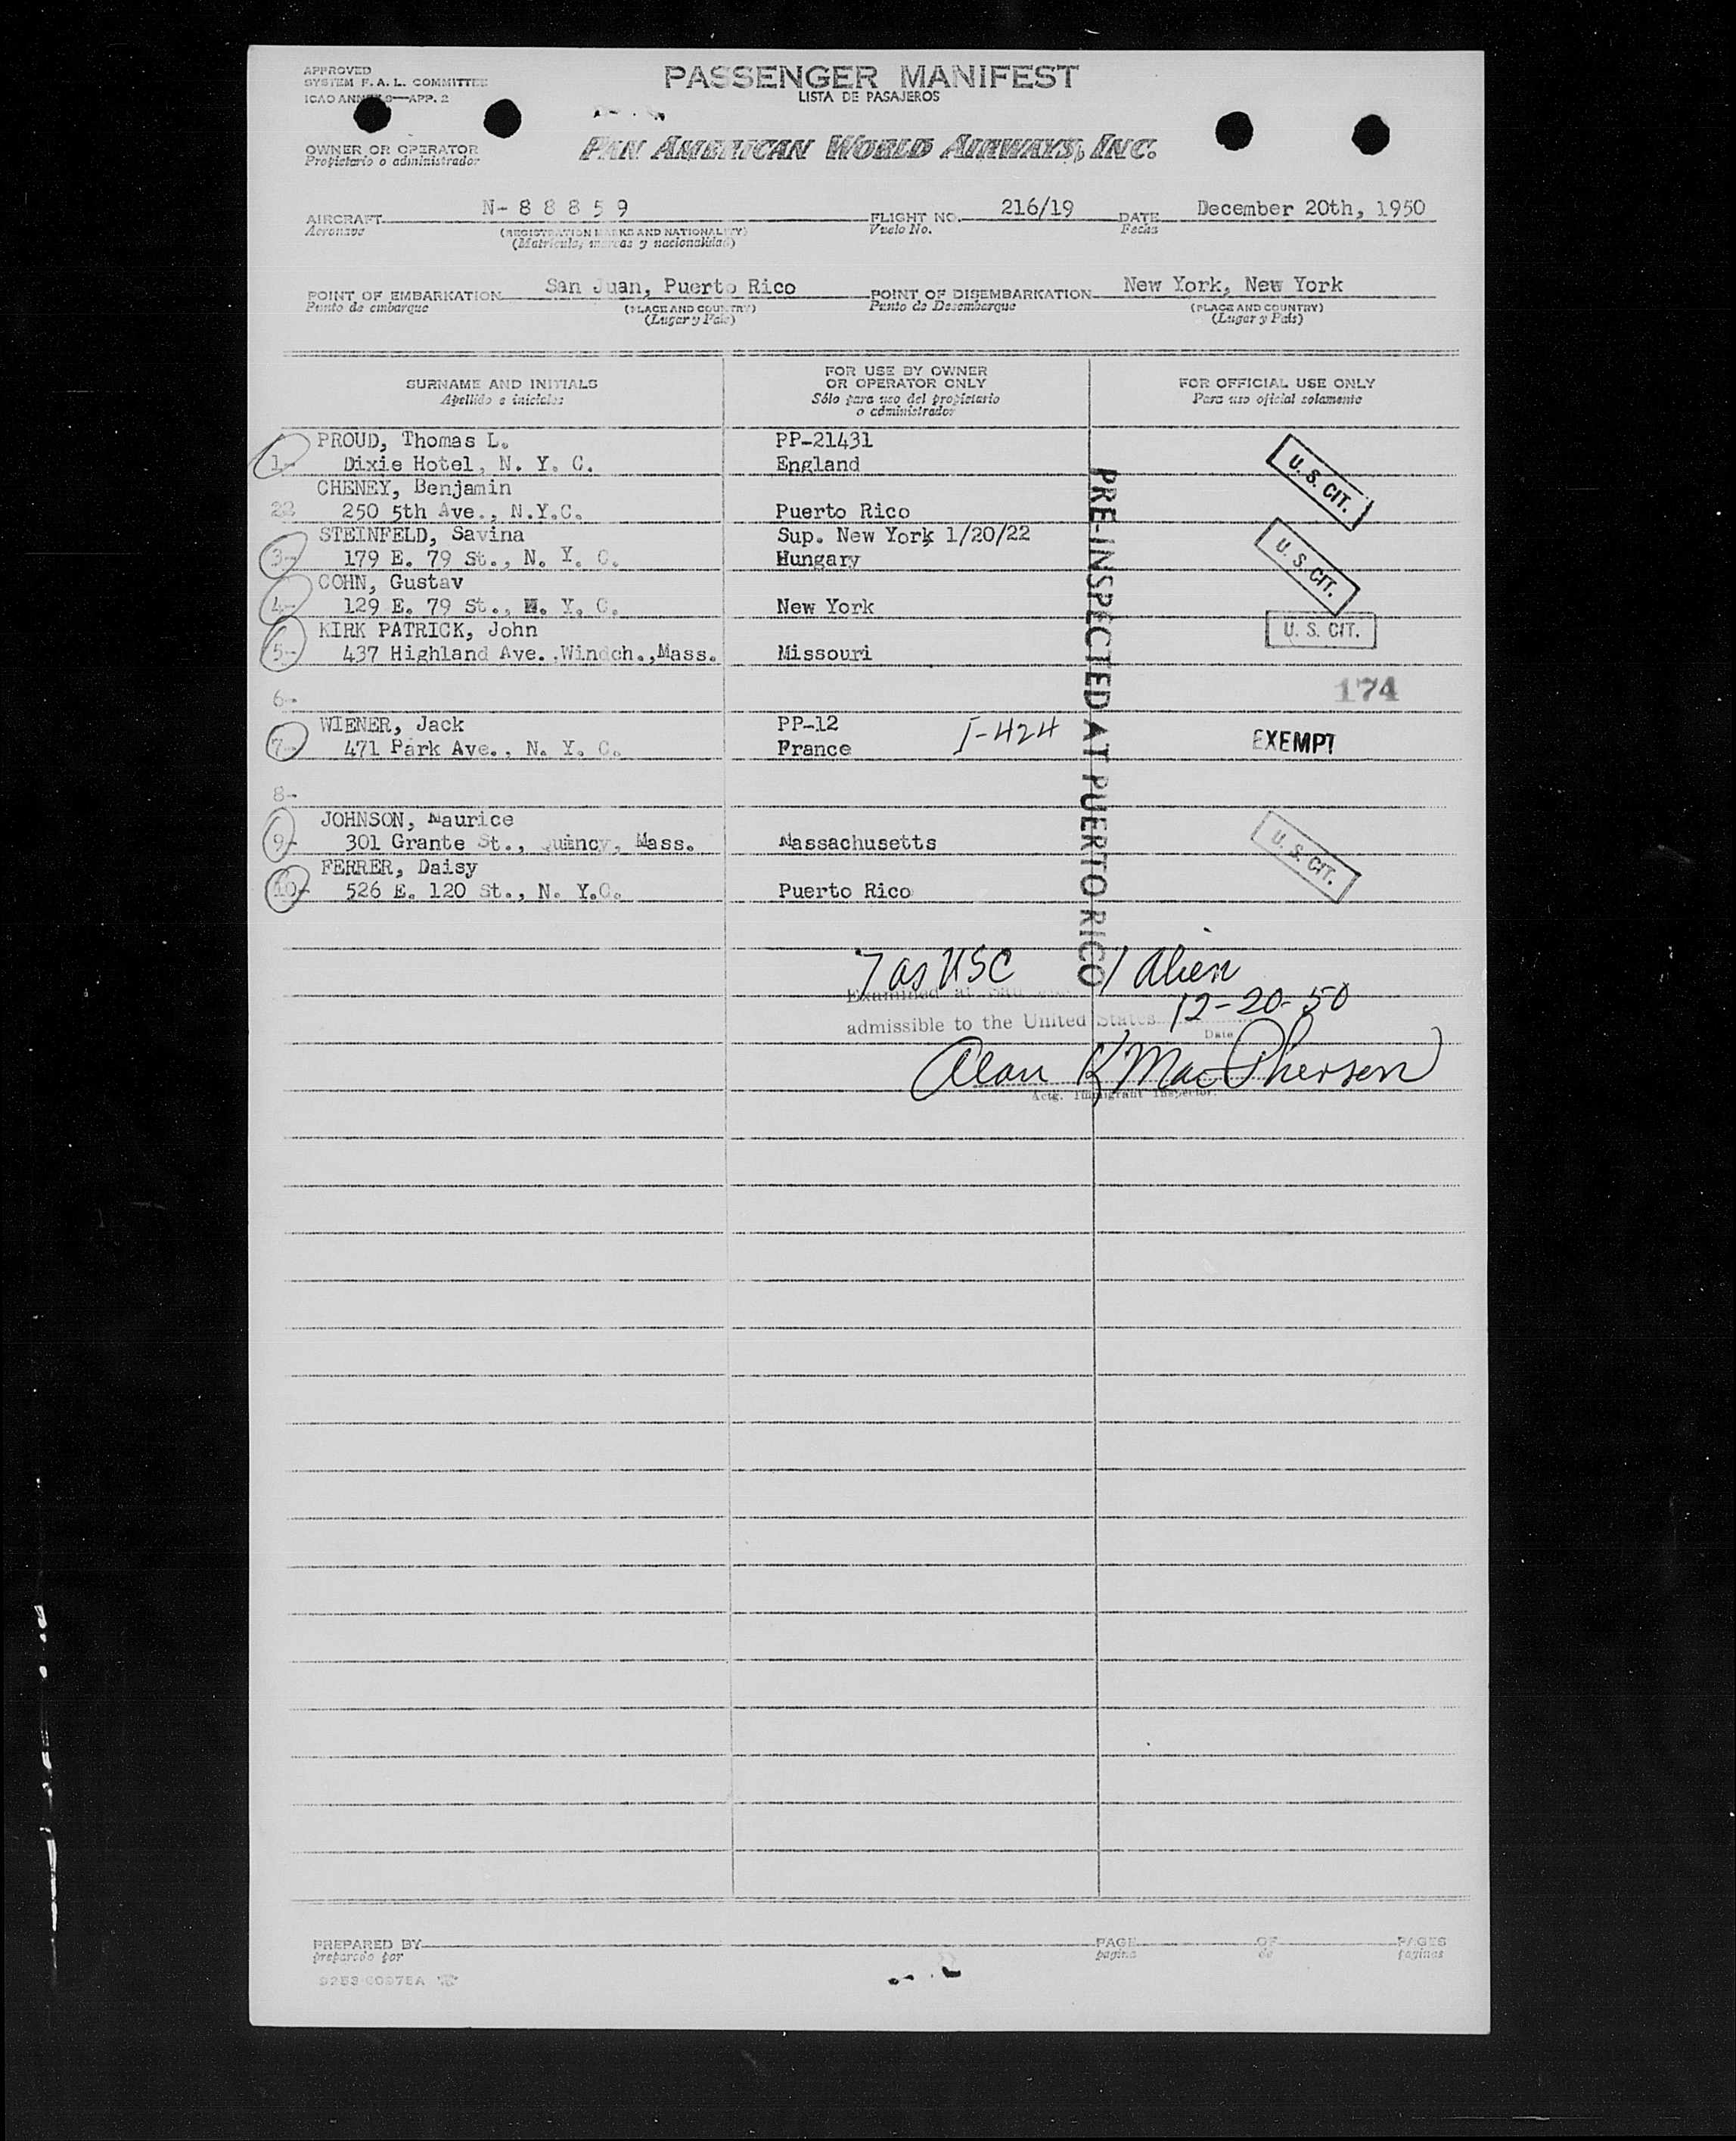 APPROVED
SYSTEM F. A. L. COMMITTEE
ICAO ANNEX 9—APP. 2
PASSENGER MANIFEST
LISTA DE PASAJEROS
OWNER OR OPERATOR
Propietario o administrador
PAN AMERICAN WORLD AIRWAYS, INC.
AIRCRAFT N- 8 8 8 5 9 FLIGHT NO. 216/19 DATE December 20th, 1950
Aeronave (REGISTRATION MARKS AND NATIONALITY) Vuelo No. Fecha
(Matricula, marcas y nacionalidad)
POINT OF EMBARKATION San Juan, Puerto Rico POINT OF DISEMBARKATION New York, New York
Punto de embarque (PLACE AND COUNTRY) Punto de Desembarque (PLACE AND COUNTRY)
(Lugar y Pais) (Lugar y País)
SURNAME AND INITIALS
Apellido e iniciales
FOR USE BY OWNER
OR OPERATOR ONLY
Sólo para uso del propietario
o administrador
FOR OFFICIAL USE ONLY
Para uso oficial solamente
PROUD, Thomas L. PP-21431
1- Dixie Hotel, N. Y. C. England U. S. CIT.
CHENEY, Benjamin
22 250 5th Ave., N.Y.C. Puerto Rico
STEINFELD, Savina Sup. New York 1/20/22
3- 179 E. 79 St., N. Y. C. Hungary U. S. CIT.
COHN, Gustav
4- 129 E. 79 St., N. Y. C. New York
KIRK PATRICK, John U. S. CIT.
5- 437 Highland Ave. ,Windch.,Mass. Missouri
6- 174
WIENER, Jack PP-12 I-424
7- 471 Park Ave., N. Y. C. France EXEMPT
8-
JOHNSON, Maurice
9- 301 Grante St., Quincy, Mass. Massachusetts U. S. CIT.
FERRER, Daisy
10- 526 E. 120 St., N. Y.C. Puerto Rico
PRE-INSPECTED AT PUERTO RICO
7 as USC 1 Alien
Examined at San
admissible to the United States 12-20-50
Date
Alan K MacPherson
Actg. Immigrant Inspector.
PREPARED BY PAGE OF PAGES
preparado por pagina de paginas